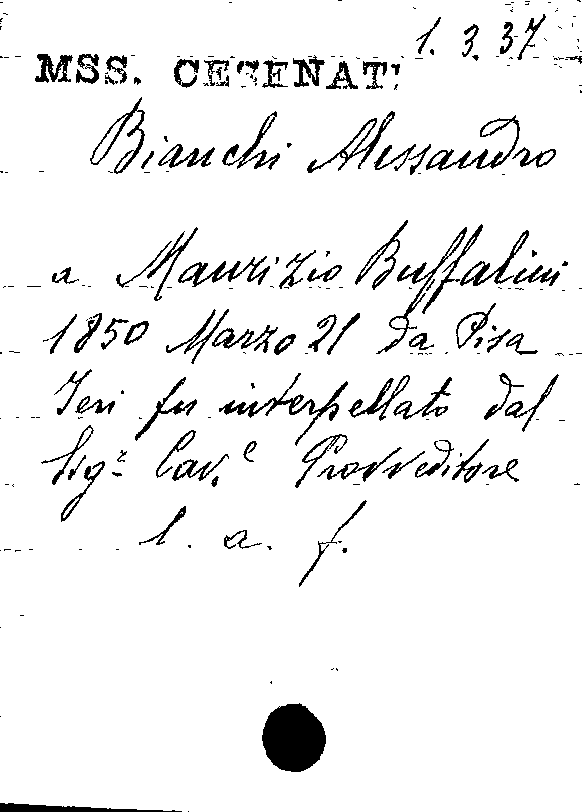 1. 3. 37
MSS. CESENATI
Bianchi Alessandro
a Maurizio Buffalini
1850 Marzo 21 da Pisa
Ieri fu interpellato dal
Sig.r Cav.e Provveditore
l. a. f.